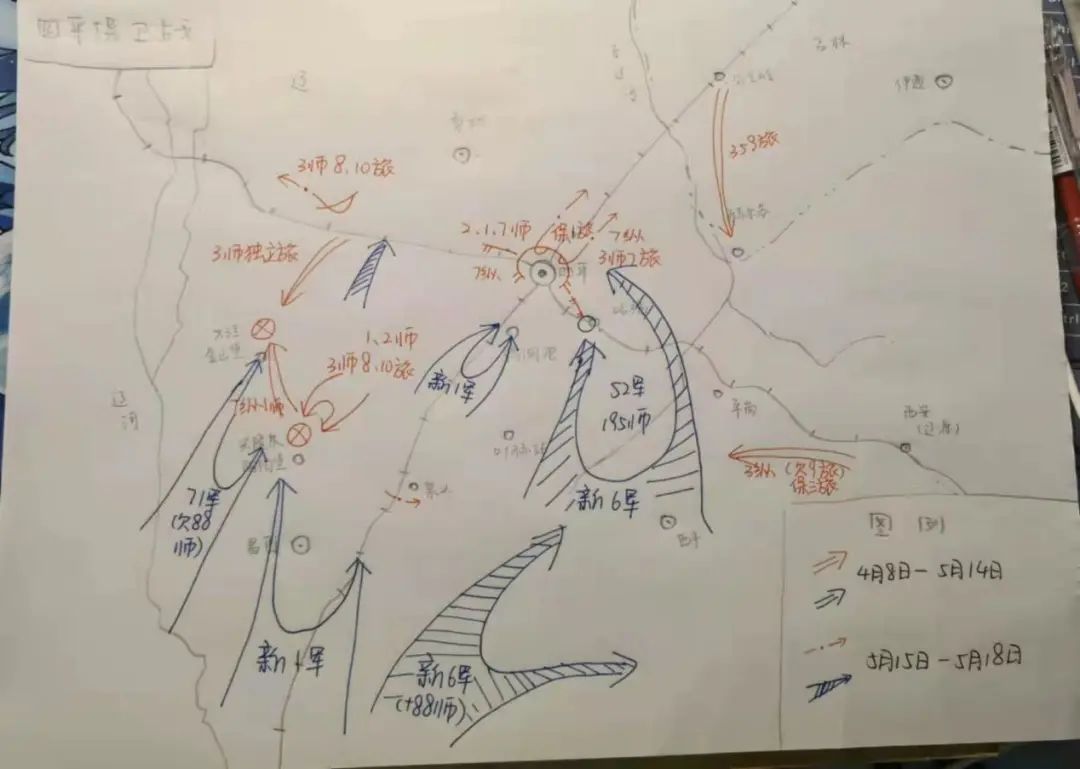 四平保卫战
吉林
伊通
辽
359旅
3师8、10旅
2、1、7师
保1旅
7纵
7纵
3师7旅
四平
3师独立旅
1、2师
3师8、10旅
7纵1师
新1军
52军
195师
平岗
西安
(辽源)
辽
河
71军
(欠88
师)
3纵(欠9旅)
保三旅
新6军
西丰
昌图
新1军
新6军
(+88师)
图例
4月8日-5月14日
5月15日-5月18日